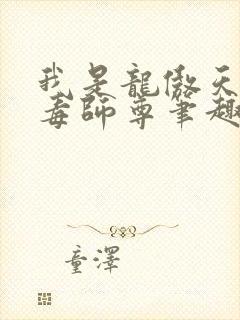 我是龍傲天
毒師尊筆趣
童澤